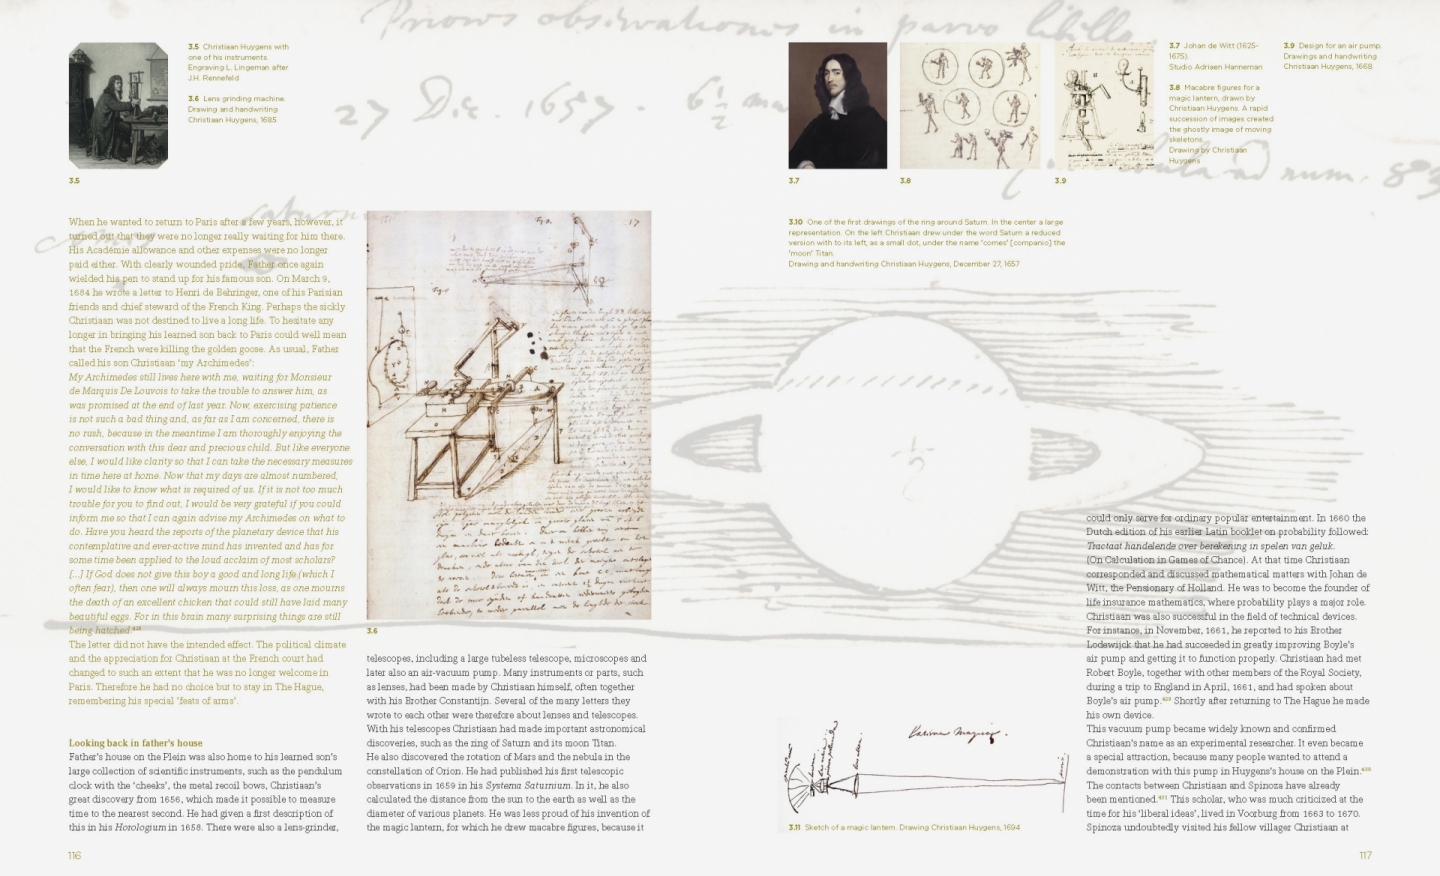 Priows observationes in parvo libello.
27 Dec. 1657 - 6½
ad num. 83
3.5 Christiaan Huygens with
one of his instruments.
Engraving L. Lingeman after
J.H. Rennefeld
3.6 Lens grinding machine.
Drawing and handwriting
Christiaan Huygens, 1685
3.5
When he wanted to return to Paris after a few years, however, it
turned out that they were no longer really waiting for him there.
His Académie allowance and other expenses were no longer
paid either. With clearly wounded pride, Father once again
wielded his pen to stand up for his famous son. On March 9,
1684 he wrote a letter to Henri de Behringer, one of his Parisian
friends and chief steward of the French King. Perhaps the sickly
Christiaan was not destined to live a long life. To hesitate any
longer in bringing his learned son back to Paris could well mean
that the French were killing the golden goose. As usual, Father
called his son Christiaan ‘my Archimedes’:
My Archimedes still lives here with me, waiting for Monsieur
de Marquis De Louvois to take the trouble to answer him, as
was promised at the end of last year. Now, exercising patience
is not such a bad thing and, as far as I am concerned, there is
no rush, because in the meantime I am thoroughly enjoying the
conversation with this dear and precious child. But like everyone
else, I would like clarity so that I can take the necessary measures
in time here at home. Now that my days are almost numbered,
I would like to know what is required of us. If it is not too much
trouble for you to find out, I would be very grateful if you could
inform me so that I can again advise my Archimedes on what to
do. Have you heard the reports of the planetary device that his
contemplative and ever-active mind has invented and has for
some time been applied to the loud acclaim of most scholars?
[...] If God does not give this boy a good and long life (which I
often fear), then one will always mourn this loss, as one mourns
the death of an excellent chicken that could still have laid many
beautiful eggs. For in this brain many surprising things are still
being hatched.⁴²⁸
The letter did not have the intended effect. The political climate
and the appreciation for Christiaan at the French court had
changed to such an extent that he was no longer welcome in
Paris. Therefore he had no choice but to stay in The Hague,
remembering his special ‘feats of arms’.
Looking back in father’s house
Father’s house on the Plein was also home to his learned son’s
large collection of scientific instruments, such as the pendulum
clock with the ‘cheeks’, the metal recoil bows, Christiaan’s
great discovery from 1656, which made it possible to measure
time to the nearest second. He had given a first description of
this in his Horologium in 1658. There were also a lens-grinder,
116
Fig. 2.
17
3.6
telescopes, including a large tubeless telescope, microscopes and
later also an air-vacuum pump. Many instruments or parts, such
as lenses, had been made by Christiaan himself, often together
with his Brother Constantijn. Several of the many letters they
wrote to each other were therefore about lenses and telescopes.
With his telescopes Christiaan had made important astronomical
discoveries, such as the ring of Saturn and its moon Titan.
He also discovered the rotation of Mars and the nebula in the
constellation of Orion. He had published his first telescopic
observations in 1659 in his Systema Saturnium. In it, he also
calculated the distance from the sun to the earth as well as the
diameter of various planets. He was less proud of his invention of
the magic lantern, for which he drew macabre figures, because it
3.7
3.8
3.9
3.7 Johan de Witt (1625-
1675).
Studio Adriaen Hanneman
3.8 Macabre figures for a
magic lantern, drawn by
Christiaan Huygens. A rapid
succession of images created
the ghostly image of moving
skeletons.
Drawing by Christiaan
Huygens
3.9 Design for an air pump.
Drawings and handwriting
Christiaan Huygens, 1668
3.10 One of the first drawings of the ring around Saturn. In the center a large
representation. On the left Christiaan drew under the word Saturn a reduced
version with to its left, as a small dot, under the name ‘comes’ [companio] the
‘moon’ Titan.
Drawing and handwriting Christiaan Huygens, December 27, 1657
3.11 Sketch of a magic lantern. Drawing Christiaan Huygens, 1694
could only serve for ordinary popular entertainment. In 1660 the
Dutch edition of his earlier Latin booklet on probability followed:
Tractaat handelende over berekening in spelen van geluk.
(On Calculation in Games of Chance). At that time Christiaan
corresponded and discussed mathematical matters with Johan de
Witt, the Pensionary of Holland. He was to become the founder of
life insurance mathematics, where probability plays a major role.
Christiaan was also successful in the field of technical devices.
For instance, in November, 1661, he reported to his Brother
Lodewijck that he had succeeded in greatly improving Boyle’s
air pump and getting it to function properly. Christiaan had met
Robert Boyle, together with other members of the Royal Society,
during a trip to England in April, 1661, and had spoken about
Boyle’s air pump.⁴²⁹ Shortly after returning to The Hague he made
his own device.
This vacuum pump became widely known and confirmed
Christiaan’s name as an experimental researcher. It even became
a special attraction, because many people wanted to attend a
demonstration with this pump in Huygens’s house on the Plein.⁴³⁰
The contacts between Christiaan and Spinoza have already
been mentioned.⁴³¹ This scholar, who was much criticized at the
time for his ‘liberal ideas’, lived in Voorburg from 1663 to 1670.
Spinoza undoubtedly visited his fellow villager Christiaan at
117